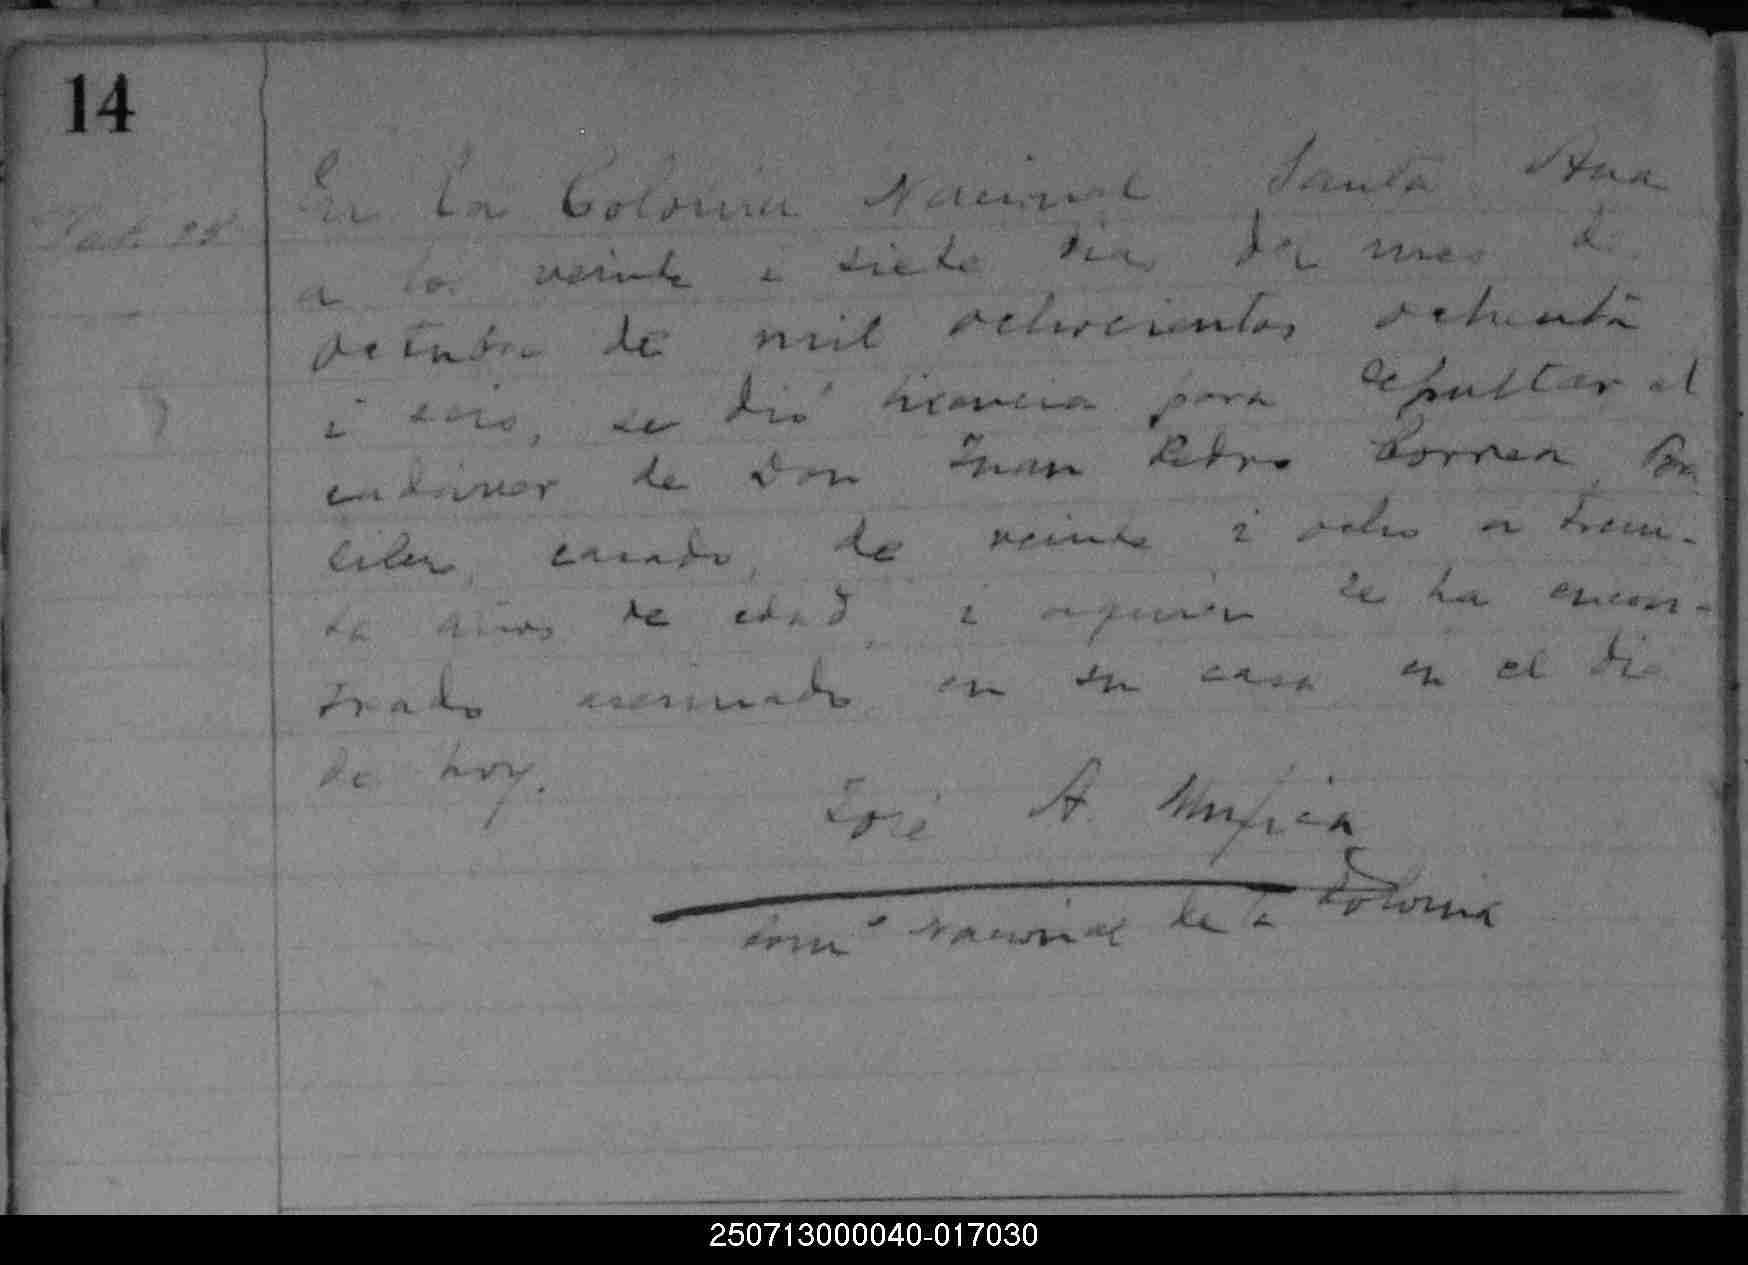 14
En la Colonia Nacional Santa Ana
a los veinte i siete dias del mes de
octubre de mil ochocientos ochenta
i seis, se dió licencia para sepultar el
cadáver de Don Juan Pedro Correa, Bra
cilero, casado, de veinte i ocho a trein-
ta años de edad, i a quien se ha encon-
trado asesinado en su casa en el dia
de hoy.
José A. Mujica
Com.º Nacional de la Colonia
250713000040-017030